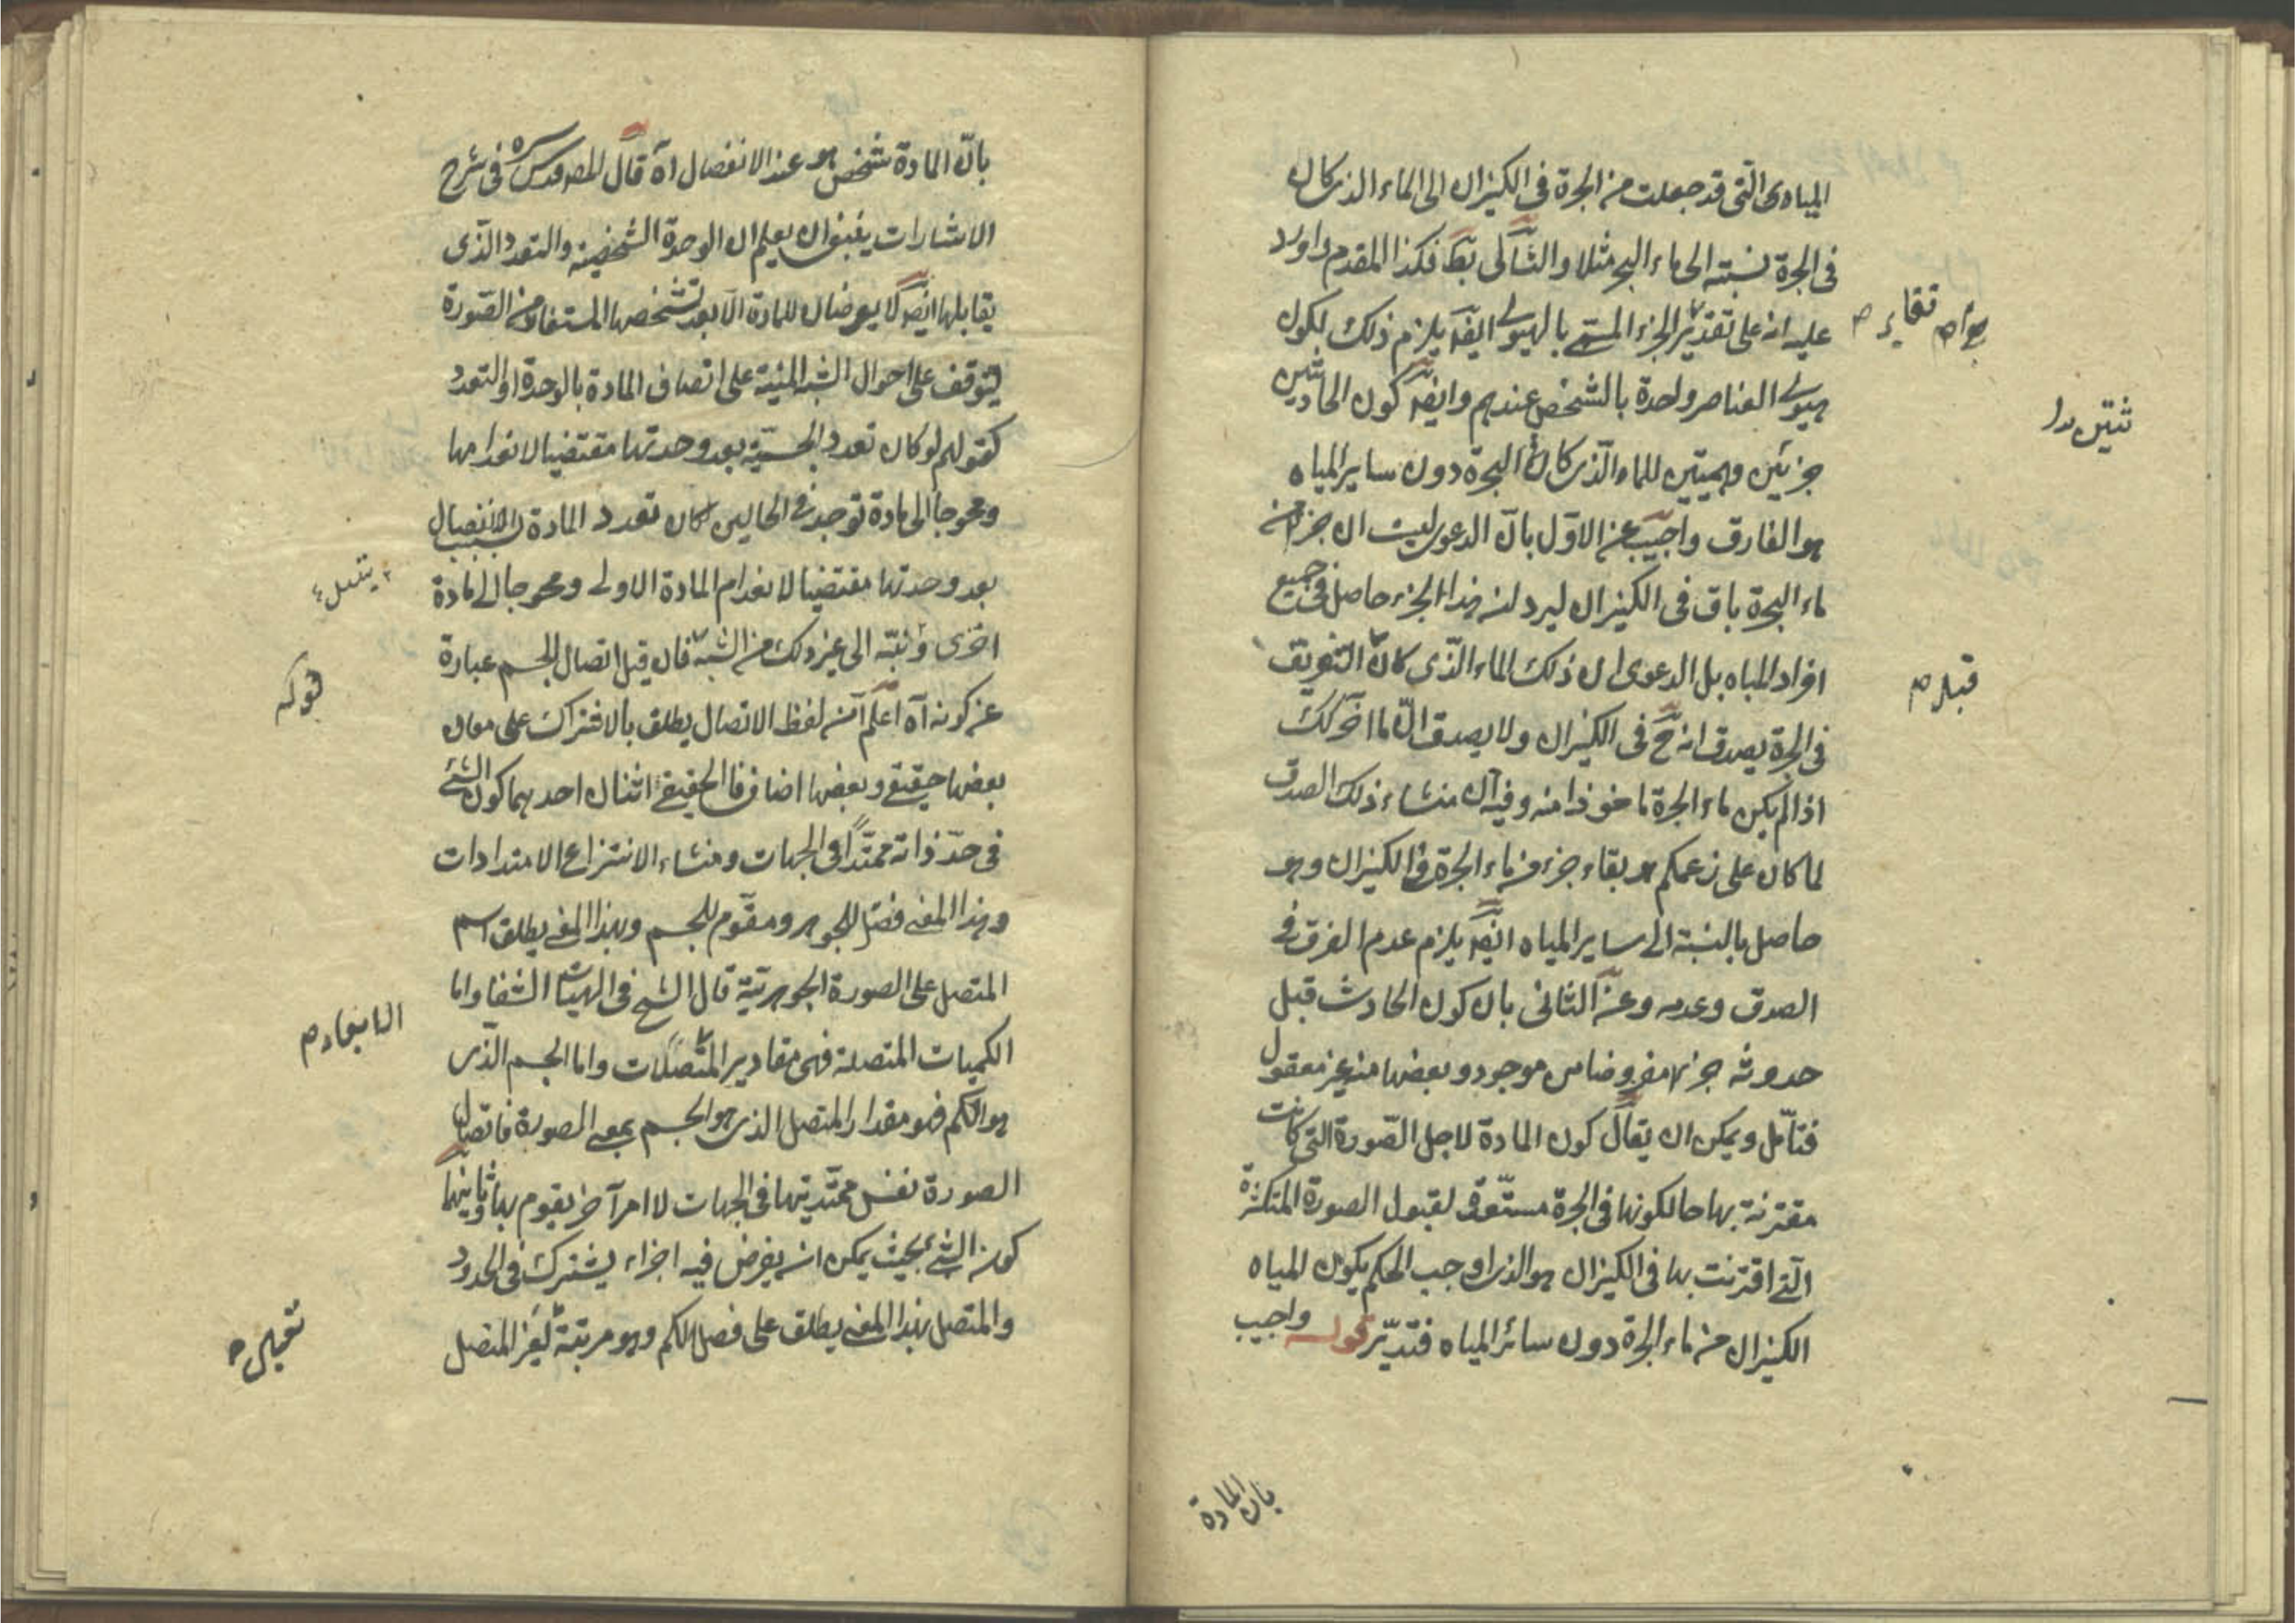 المياه التى قد جعلت من الجرة فى الكيزان الى الماء الذى كان
فى الجرة نسبته الى ماء البحر مثلا والتالى بط فكذا المقدم واورد
عليه انه على تقدير الجزء المسمى بالهيولى ايضا يلزم ذلك لكون
هيولى العناصر واحدة بالشخص عندهم وايضا كون الحادثين
جزئين وهميين للماء الذى كان فى الجرة دون ساير المياه
هو الفارق واجيب عن الاول بان الدعوى ليست ان جزء من
ماء الجرة باق فى الكيزان ليرد ان هذا الجزء حاصل فى جميع
افراد المياه بل الدعوى ان ذلك الماء الذى كان التفريق
فى الجرة يصدق انه ح فى الكيزان ولا يصدق ان ماء آخر كك
اذا لم يكن ماء الجرة ماخوذا منه وفيه ان منشاء ذلك الصدق
لما كان على زعمكم هو بقاء جزء من ماء الجرة فى الكيزان وهو
حاصل بالنسبة الى ساير المياه ايضا يلزم عدم الفرق فى
الصدق وعدمه وعن الثانى بان كون الحادث قبل
حدوثه جزء مفروضا من موجود وبعضها منه غير معقول
فتامل ويمكن ان يقال كون المادة لاجل الصورة التى كانت
مقترنة بها حالكونها فى الجرة مستعدة لقبول الصورة المتكثرة
التى اقترنت بها فى الكيزان هو الذى اوجب الحكم بكون المياه
الكيزان من ماء الجرة دون سائر المياه فتدبر قوله واجيب
بان المادة
ثنتين
قبل م
بان المادة شخص هو عند الانفصال آه قال المص قدس سره فى شرح
الاشارات ينبغى ان يعلم ان الوحدة الشخصية والتعدد الذى
يقابلها ايضا لا يعرضان للمادة الا بعد تشخصها المستفاد من الصورة
ليتوقف على احوال الشبه المبنية على اتصاف المادة بالوحدة او التعدد
كقولهم لو كان تعدد الجسمية بعد وحدتها مقتضيا لانعدامها
ومحوجا الى مادة توجد فى الحالين لكان تعدد المادة بسبب الانفصال
بعد وحدتها مقتضيا لانعدام المادة الاولى ومحوجا الى مادة
اخرى ونبه الى غير ذلك من الشبه فان قيل اتصال الجسم عبارة
عن كونه آه اعلم ان لفظ الاتصال يطلق بالاشتراك على معان
بعضها حقيقى وبعضها اضافى فالحقيقى اثنان احدهما كون الشئ
فى حد ذاته ممتدا فى الجهات ومنشاء لانتزاع الامتدادات
وهذا المعنى فصل للجوهر ومقوم للجسم وبهذا المعنى يطلق اسم
المتصل على الصورة الجوهرية قال الشيخ فى الهيات الشفا واما
الكميات المتصلة فهى مقادير المتصلات واما الجسم الذى
هو الكم فهو مقدار المتصل الذى هو الجسم بمعنى الصورة فاتصال
الصورة نفس ممتديتها فى الجهات لا امر آخر يقوم بها وثانيهما
كون الشئ بحيث يمكن ان يفرض فيه اجزاء يشترك فى الحدود
والمتصل بهذا المعنى يطلق على فصل الكم وهو مرتبة لغير المتصل
قوله
الابعاد م